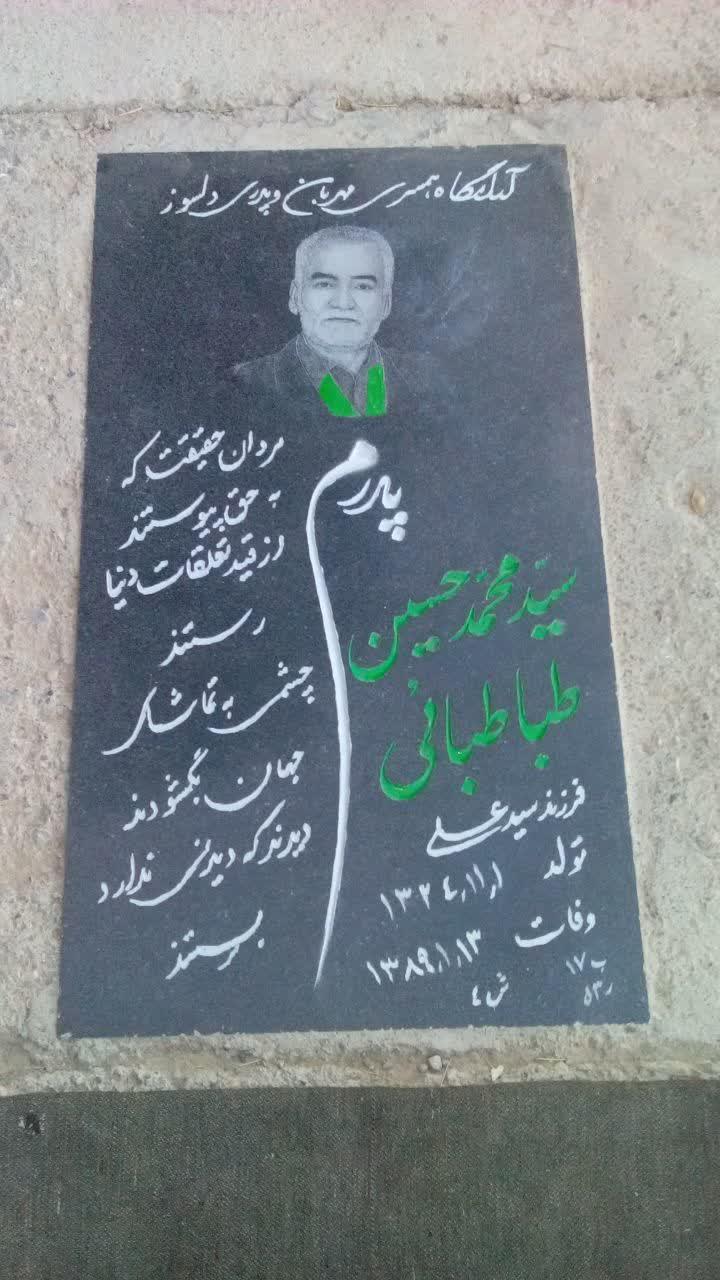 آرامگاه همسری مهربان و پدری دلسوز
پدرم
سیّد محمّد حسین
طباطبائی
فرزند سید علی
تولد ۱۳۲٤٫۱۱٫۱
وفات ۱۳۸۹٫۱٫۱۳
ب ۱۷
ر ۵۳
ش ٤
مردان حقیقت که
به حق پیوستند
از قید تعلقات دنیا
رستند
چشمی به تماشای
جهان بگشودند
دیدند که دیدنی ندارد
بستند